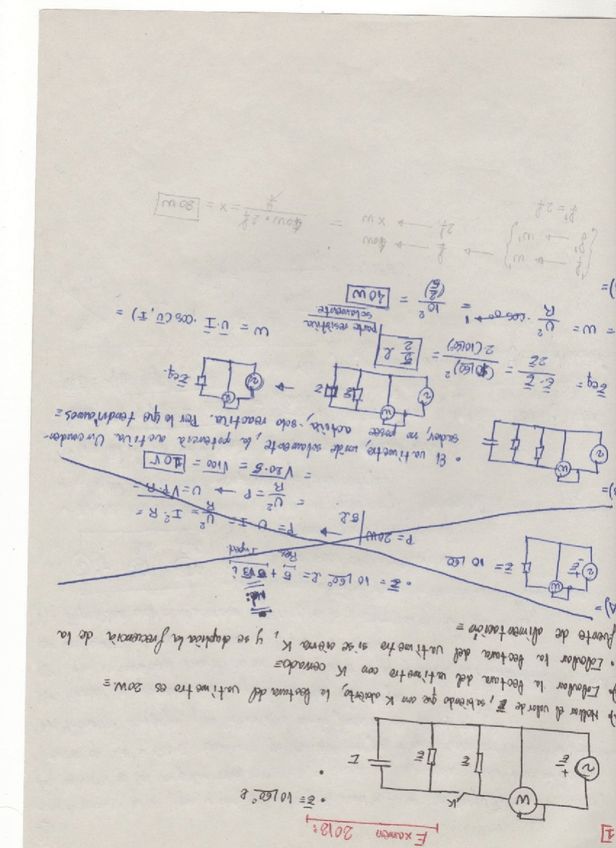 Examen 2012:
1]
• Z̄ = 10∟60° Ω
W
K
Z̄
Z̄
I
a) Hallar el valor de Z̄, sabiendo que con K abierto, la lectura del vatímetro es 20W =
• Calcular la lectura del vatímetro con K cerrado =
• Calcular la lectura del vatímetro si se cierra K, y se duplica la frecuencia de la
fuente de alimentación =
A) =
Z̄ = 10∟60
• Z̄ = 10∟60° Ω = 5 + 5√3 i
P = 20W
5 Ω
→ P = U·I = U²/R = I²·R =
= U²/R = P → U = √P·R =
= √20·5 = √100 = 10V
• El vatímetro, mide solamente, la potencia activa. Un conden-
sador, no posee activa, solo reactiva. Por lo que tendríamos =
W
Z̄eq.
Z̄eq = Z̄·Z̄ / 2Z̄ = (10∟60)² / 2(10∟60) = 5/2 Ω
parte resistiva
solamente
W = Ū·Ī·cos(U,I) =
= W = U²/R · cos 0° = 10² / (5/2) = 40W
f → W
f' → W'
f' = 2f
f → 40W
2f → XW
= 40W·2f / f = X = 80W